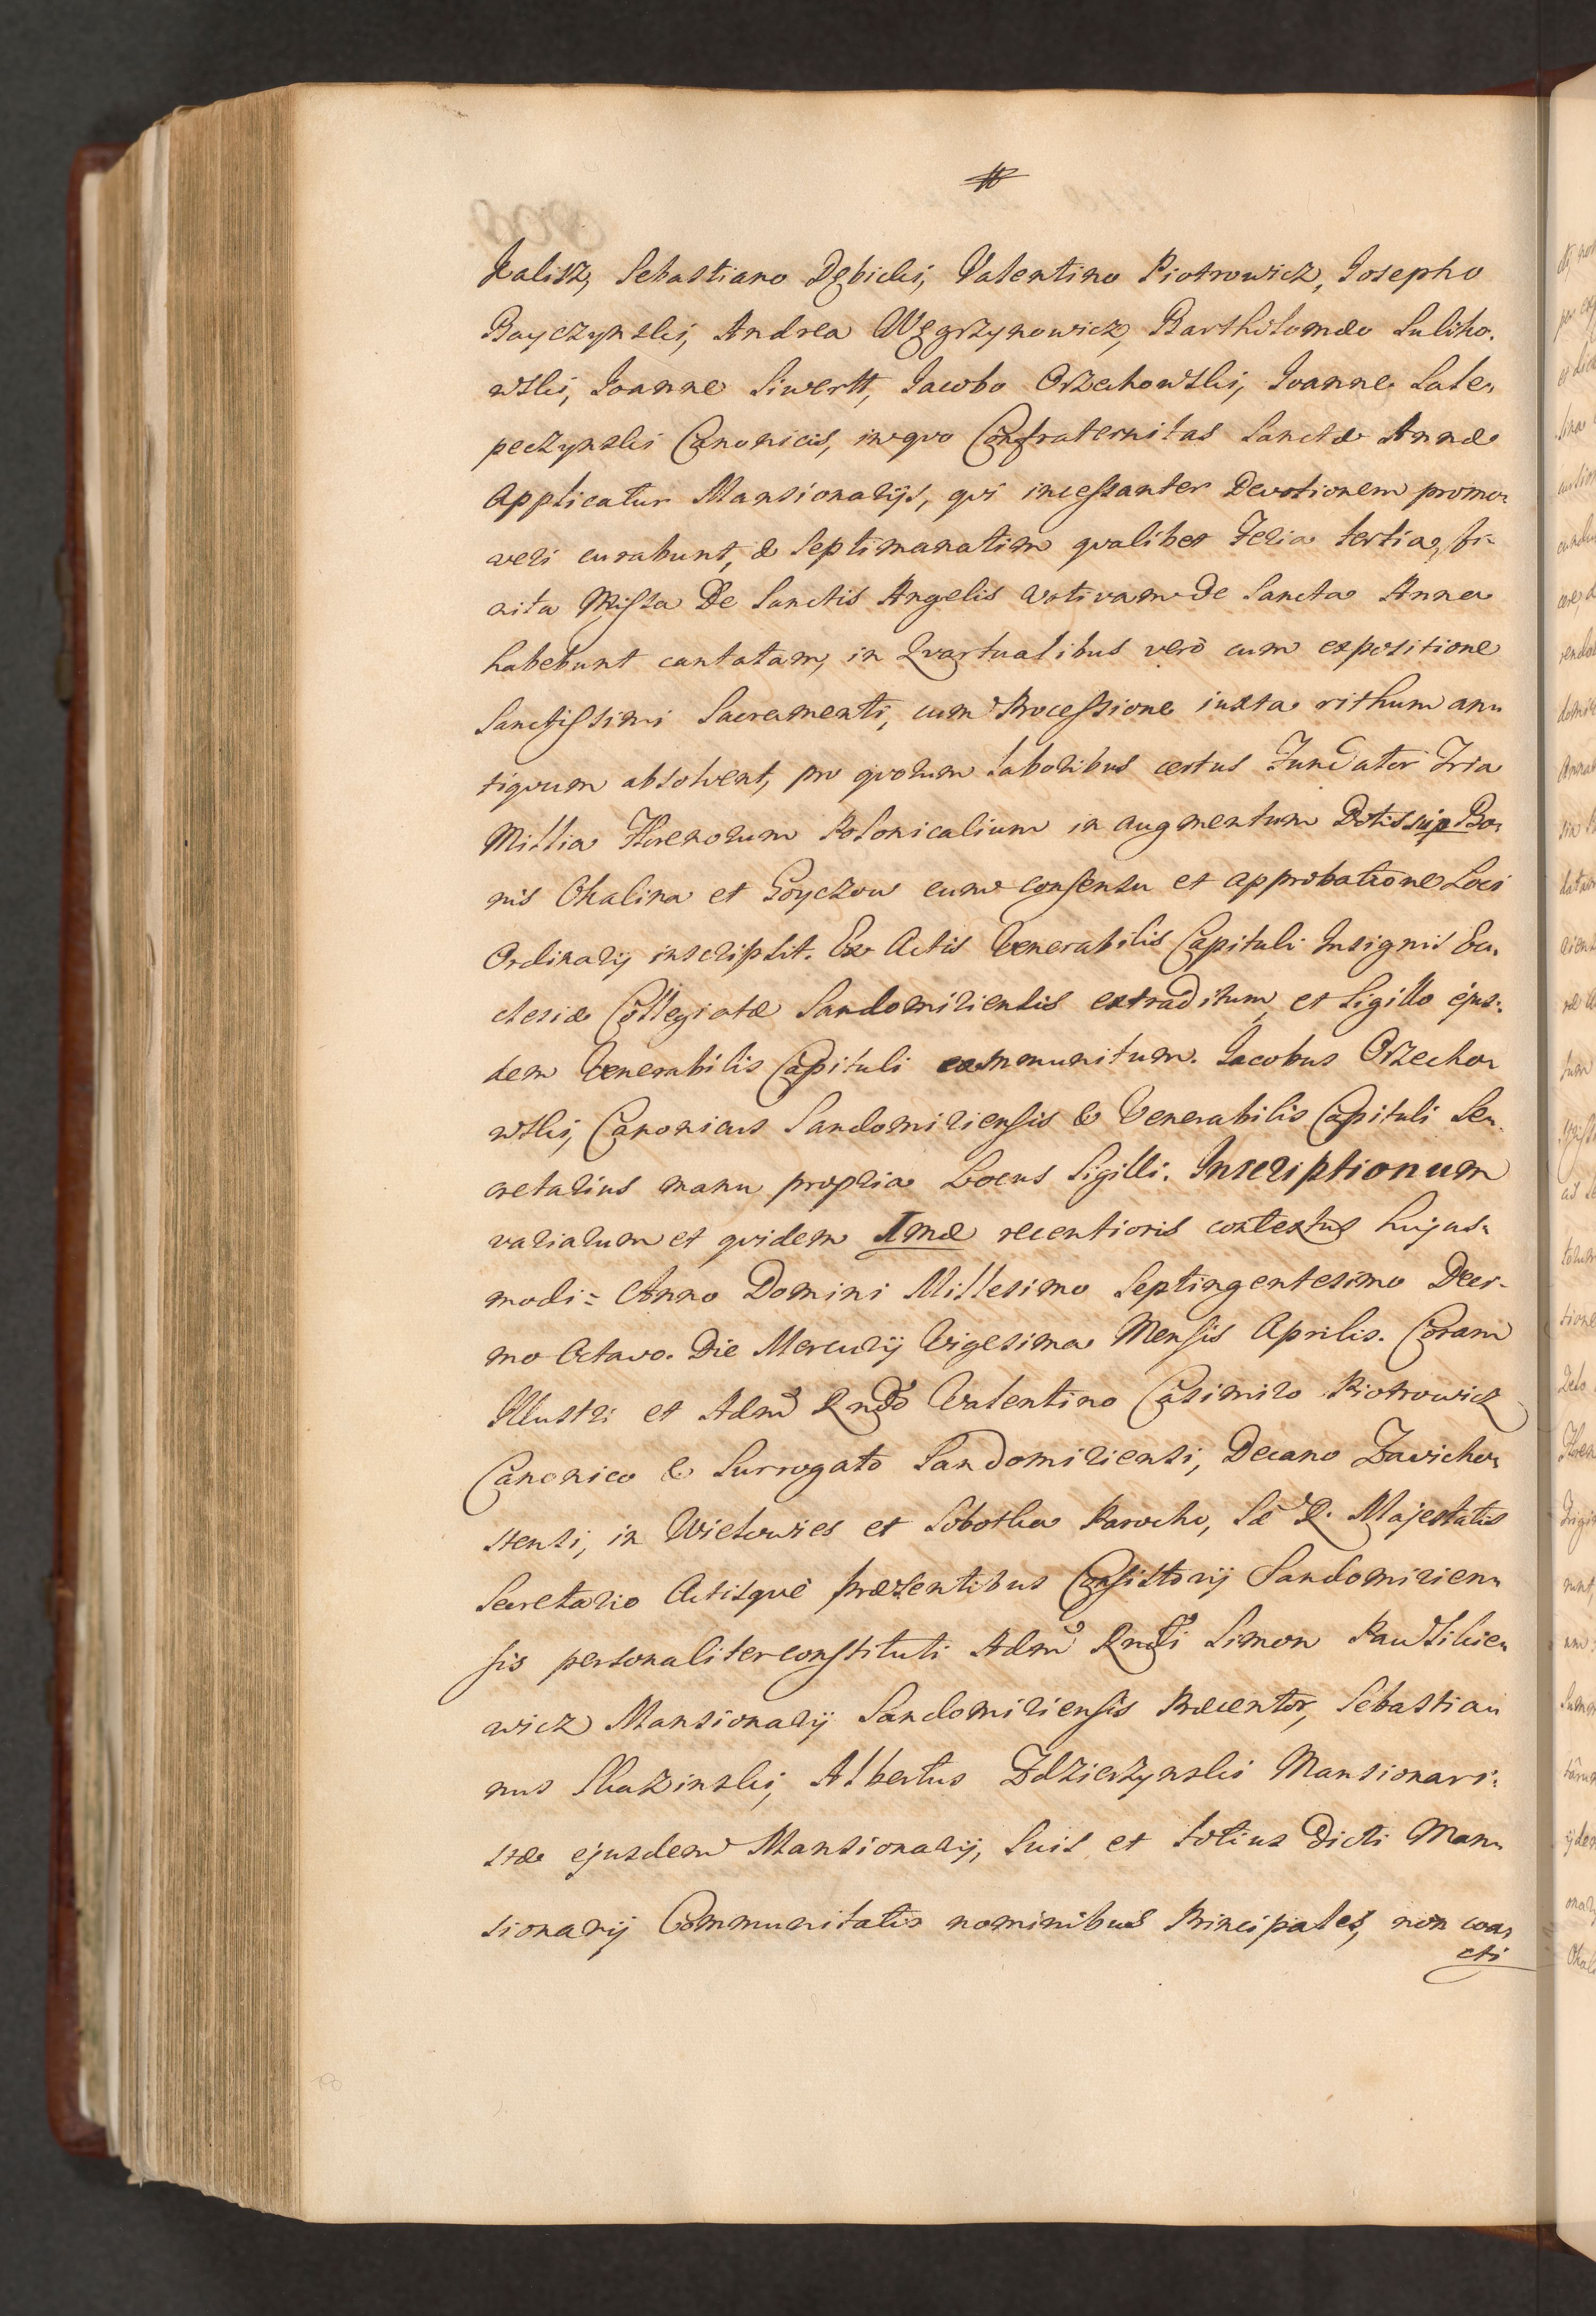 Kalisz, Sebastiano Dębicki, Valentino Piotrowicz, Josepho
Bayczynski, Andrea Węgrzynowicz, Bartholomæo Suliko-
wski, Joanne Siwertt, Jacobo Orzechowski, Joanne Sale-
peczynski Canonicis, in qvo Confraternitas Sanctæ Annæ
Applicatur Mansionarijs, qvi incessanter Devotionem promo-
veri curabunt, & Septimanatim qvalibet Feria tertia, fi-
nita Missa De Sanctis Angelis votivam de Sancta Anna
habebunt cantatam, in Qvartualibus verò cum expositione
Sanctissimi Sacramenti, cum Processione iuxta rithum an-
tiqvum absolvent, pro qvorum laboribus certus Fundator Tria
Millia Florenorum Polonicalium in augmentum Dotis sup Bo-
nis Okalina et Goyczow cum consensu et approbatione Loci
Ordinarij inscripsit. Ex Actis Venerabilis Capituli Insignis Ec-
clesiæ Collegiatæ Sandomiriensis extraditum, et Sigillo ejus-
dem Venerabilis Capituli communitum. Jacobus Orzecho-
wski, Canonicus Sandomiriensis & Venerabilis Capituli Se-
cretarius manu propria Locus Sigilli. Inscriptionum
variarum et qvidem Imæ recentioris contextus hujus-
modi = Anno Domini Millesimo Septingentesimo Deci-
mo Octavo. Die Mercurij Vigesima Mensis Aprilis. Coram
Illustri et Adm Rndo Valentino Casimiro Piotrowicz
Canonico & Surrogato Sandomiriensi, Decano Zavicho-
stensi, in Wielowies et Sobotka Parocho, Sæ R. Majestatis
Secretario Actisqve præsentibus Consistorij Sandomirien-
sis personaliter constituti Adm Rndi Simon Pawsikie-
wicz Mansionarij Sandomiriensis Præcentor, Sebastia-
nus Skazinski, Albertus Zdzierzynski Mansionari-
stæ ejusdem Mansionarij, suis et totius Dicti Man-
sionarij Communitatis nominibus Principales, non coa-
cti